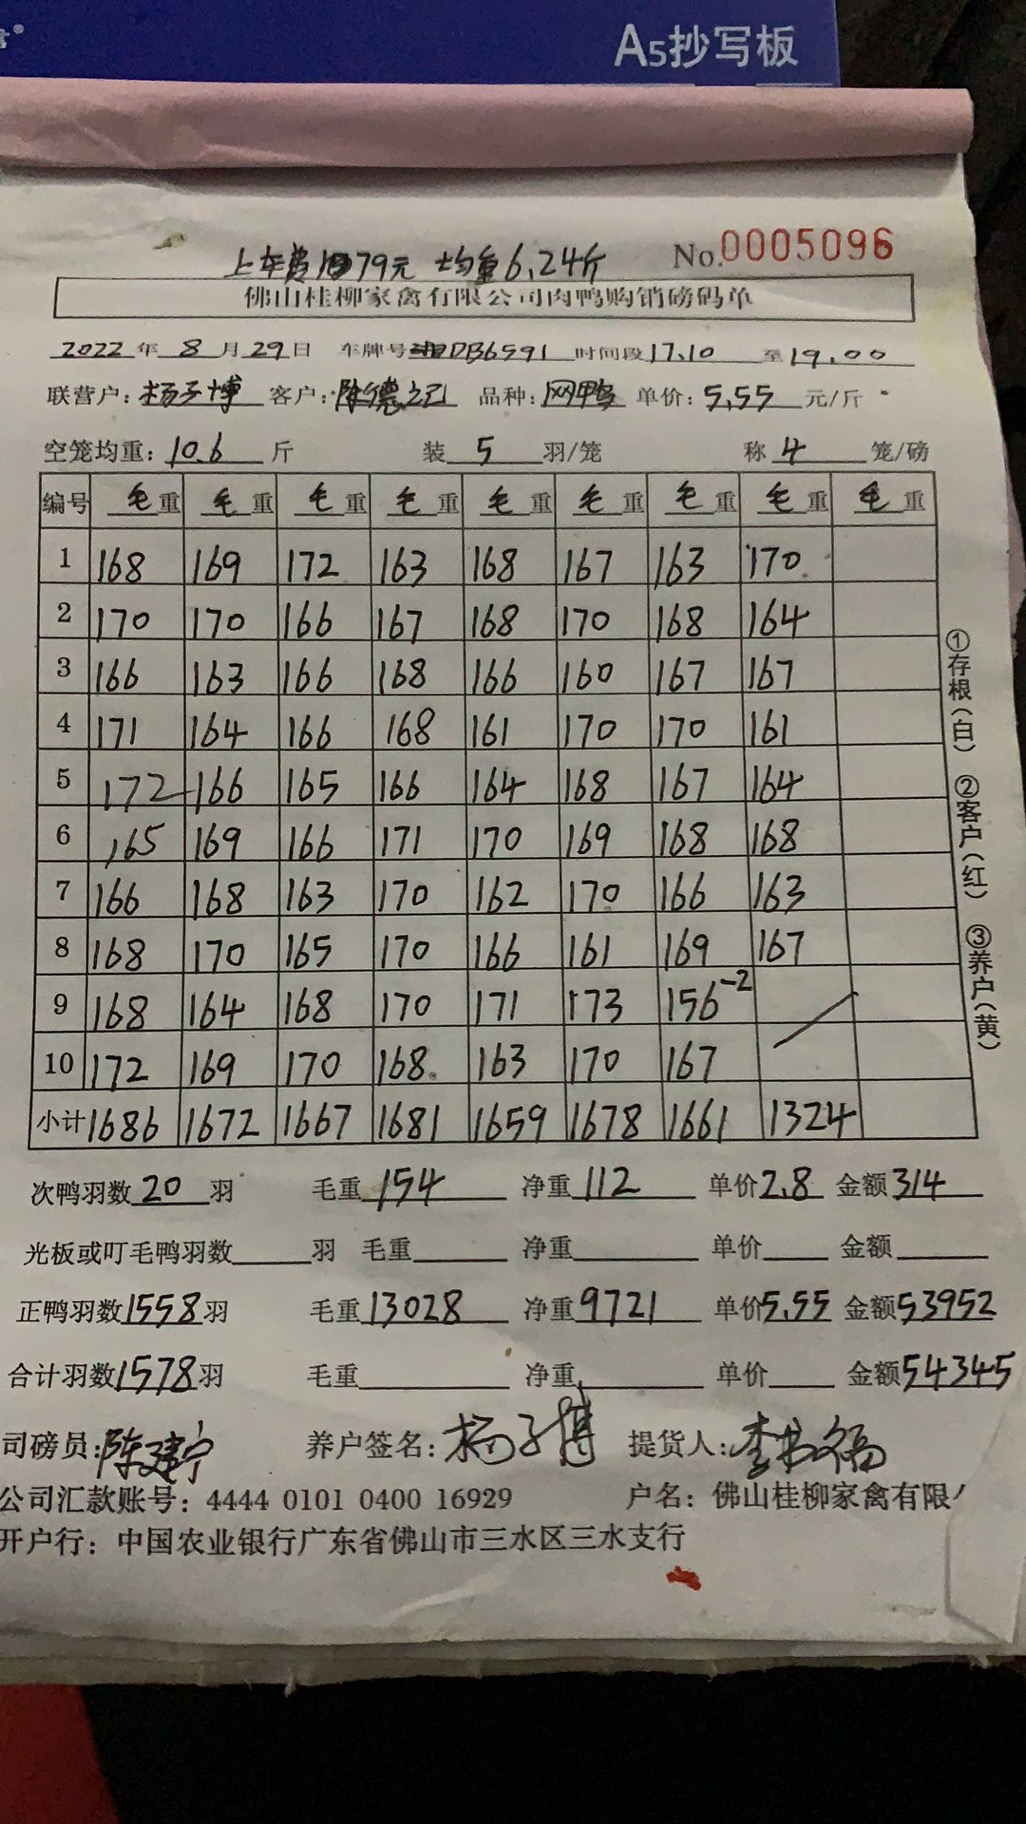 A5抄写板
上车费79元 均重6.24斤 No.0005096
佛山桂柳家禽有限公司肉鸭购销磅码单
2022年8月29日 车牌号DB6591 时间段17.10至19.00
联营户:杨子博 客户:陈德记 品种:网鸭 单价:5.55元/斤
空笼均重:10.6斤 装5羽/笼 称4笼/磅
编号 毛重 毛重 毛重 毛重 毛重 毛重 毛重 毛重 毛重
1 168 169 172 163 168 167 163 170
2 170 170 166 167 168 170 168 164
3 166 163 166 168 166 160 167 167
4 171 164 166 168 161 170 170 161
5 172 166 165 166 164 168 167 164
6 165 169 166 171 170 169 168 168
7 166 168 163 170 162 170 166 163
8 168 170 165 170 166 161 169 167
9 168 164 168 170 171 173 156-2
10 172 169 170 168 163 170 167
小计 1686 1672 1667 1681 1659 1678 1661 1324
①存根(白) ②客户(红) ③养户(黄)
次鸭羽数20羽 毛重154 净重112 单价2.8 金额314
光板或叮毛鸭羽数 羽 毛重 净重 单价 金额
正鸭羽数1558羽 毛重13028 净重9721 单价5.55 金额53952
合计羽数1578羽 毛重 净重 单价 金额54345
司磅员:陈建宁 养户签名:杨子博 提货人:李福
公司汇款账号:4444 0101 0400 16929 户名:佛山桂柳家禽有限
开户行:中国农业银行广东省佛山市三水区三水支行